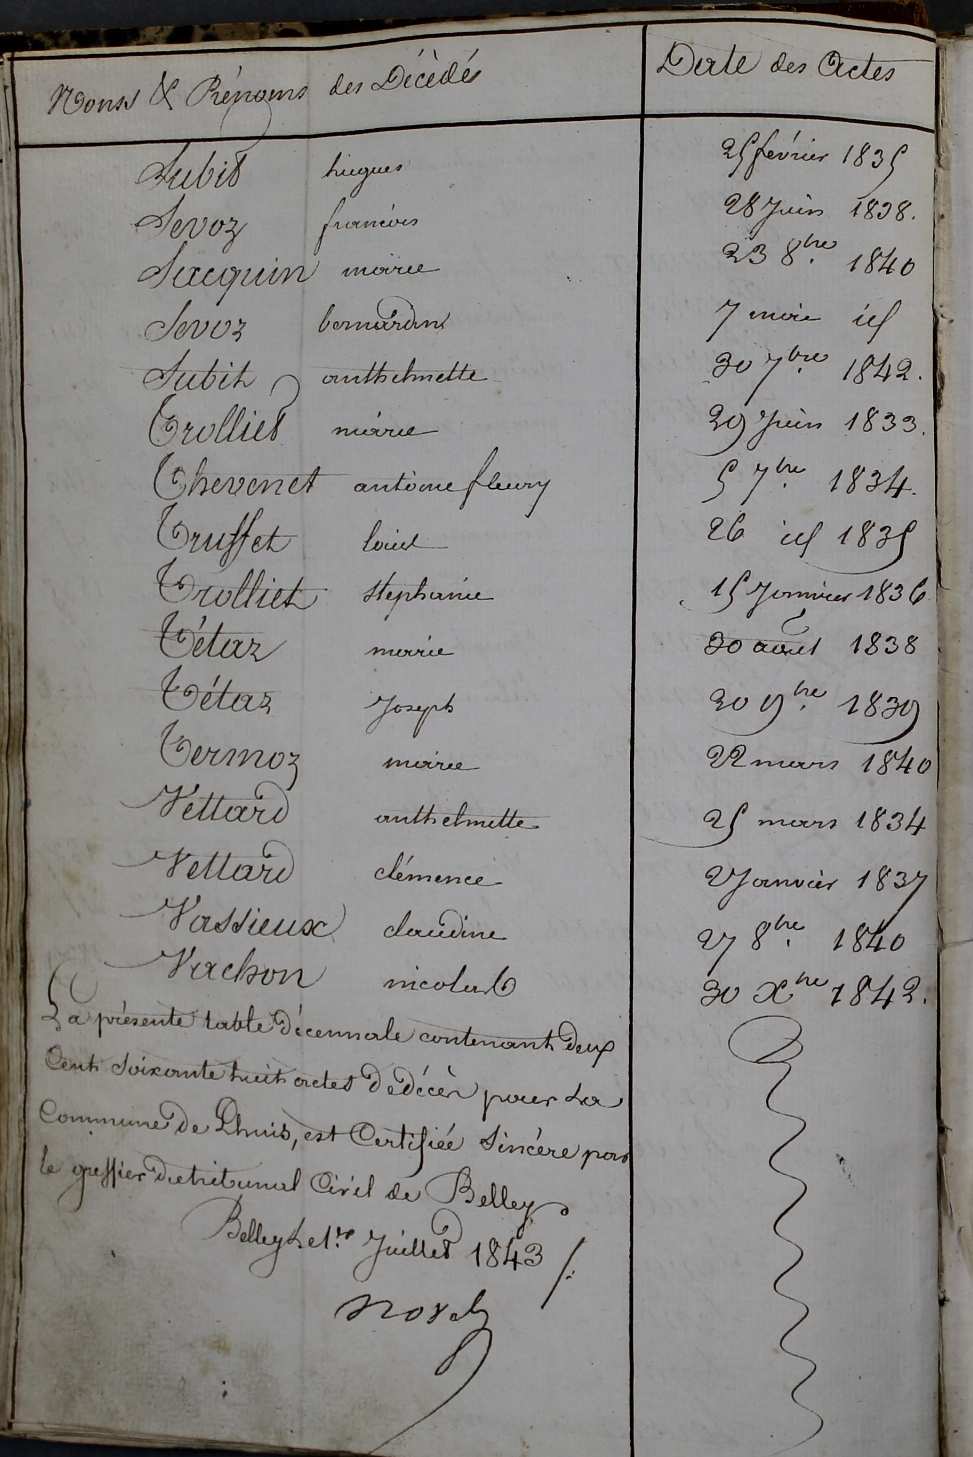 Noms & Prénoms des Décédés Date des Actes
Subit hugues 25 février 1835
Sevoz francois 28 Juin 1838.
Sacquin marie 23 8bre. 1840
Sevoz bernardin 7 mai id
Subit anthelmette 30 7bre. 1842.
Trolliet marie 29 Juin 1833.
Thevenet antoine fleury 5 7bre. 1834.
Truffet louis 26 id 1835
Trolliet stephanie 15 Janvier 1836
Tétaz marie 30 août 1838
Tétaz Joseph 20 9bre. 1839
Termoz marie 22 mars 1840
Vettard anthelmette 25 mars 1834
Vettard clémence 2 Janvier 1837
Vassieux claudine 27 8bre. 1840
Vachon nicolas 30 Xbre 1842.
La présente table décennale contenant deux
Cent soixante huit actes de décès pour La
Commune de Lhuis, est Certifiée Sincère par
le greffier du tribunal Civil de Belley
Belley Le 1er Juillet 1843 /.